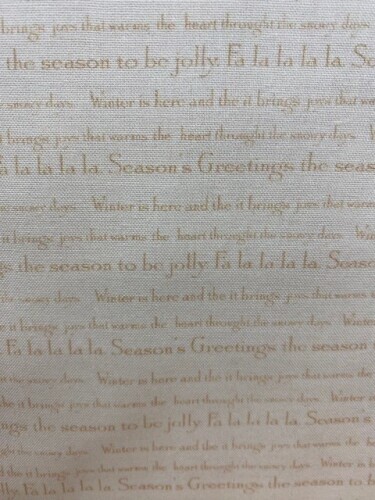 brings joys that warms the heart throught the snowy days
the season to be jolly. Fa la la la la. So
e snowy days Winter is here and the it brings joys that war
t brings joys that warms the heart throught the snowy days W
a la la la la. Season's Greetings the seas
e snowy days Winter is here and the it brings joys that warm
it brings joys that warms the heart throught the snowy days Wi
gs the season to be jolly. Fa la la la la. Seaso
the snowy days Winter is here and the it brings joys that warms t
e it brings joys that warms the heart throught the snowy days Winte
. Fa la la la la. Season's Greetings the season t
t the snowy days Winter is here and the it brings joys that warms the
the it brings joys that warms the heart throught the snowy days Winter is
ngs the season to be jolly. Fa la la la la. Season's
ght the snowy days Winter is here and the it brings joys that warms the hea
nd the it brings joys that warms the heart throught the snowy days Winter is h
olly. Fa la la la la. Season's Greetings the season to b